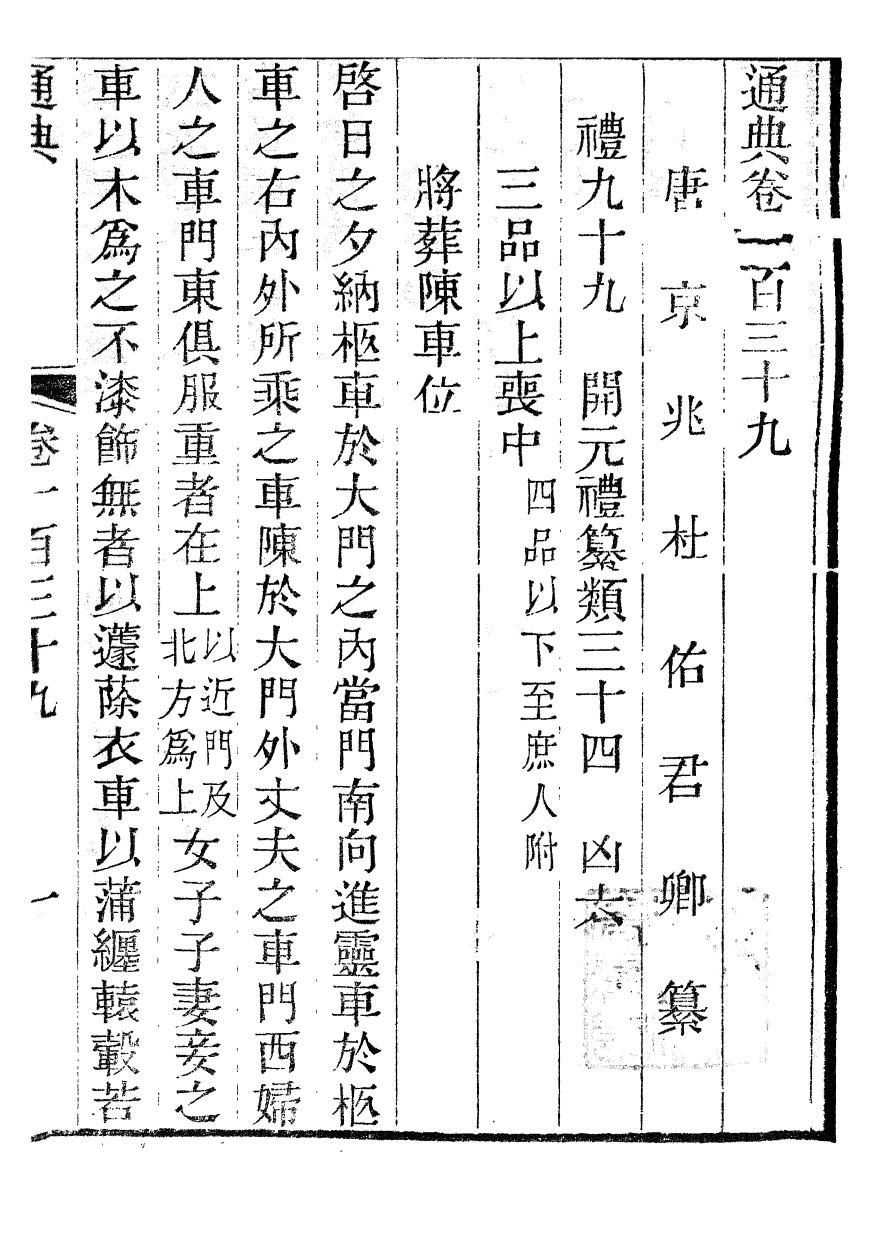 通典卷一百三十九
唐京兆杜佑君卿纂
禮九十九　開元禮纂類三十四　凶六
三品以上喪中四品以下至庶人附
將葬陳車位
啓日之夕納柩車於大門之內當門南向進靈車於柩
車之右內外所乘之車陳於大門外丈夫之車門西婦
人之車門東俱服重者在上以近門及北方爲上女子子妻妾之
車以木爲之不漆飾無者以蘧蒢衣車以蒲纏轅轂若
通典　卷一百三十九　一